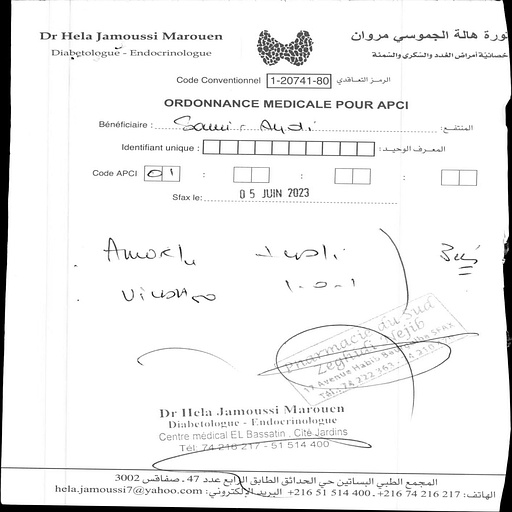 Dr Hela Jamoussi Marouen
Diabetologue - Endocrinologue
ورة هالة الجموسي مروان
خصائية أمراض الغدد والسكري والسمنة
Code Conventionnel 1-20741-80 الرمز التعاقدي
ORDONNANCE MEDICALE POUR APCI
Bénéficiaire : Sami المنتفع :
Identifiant unique : المعرف الوحيد :
Code APCI 01 : : :
Sfax le: 05 JUIN 2023
1-0-1
pharmacie du Sud
Zeghidi Nejib
Dr Hela Jamoussi Marouen
Diabetologue - Endocrinologue
Centre médical EL Bassatin , Cité Jardins
Tél: 74 216 217 - 51 514 400
المجمع الطبي البساتين حي الحدائق الطابق الرابع عدد 47 . صفاقس 3002
الهاتف: 217 216 74 216+ ، 400 514 51 216+ البريد الإلكتروني: hela.jamoussi7@yahoo.com